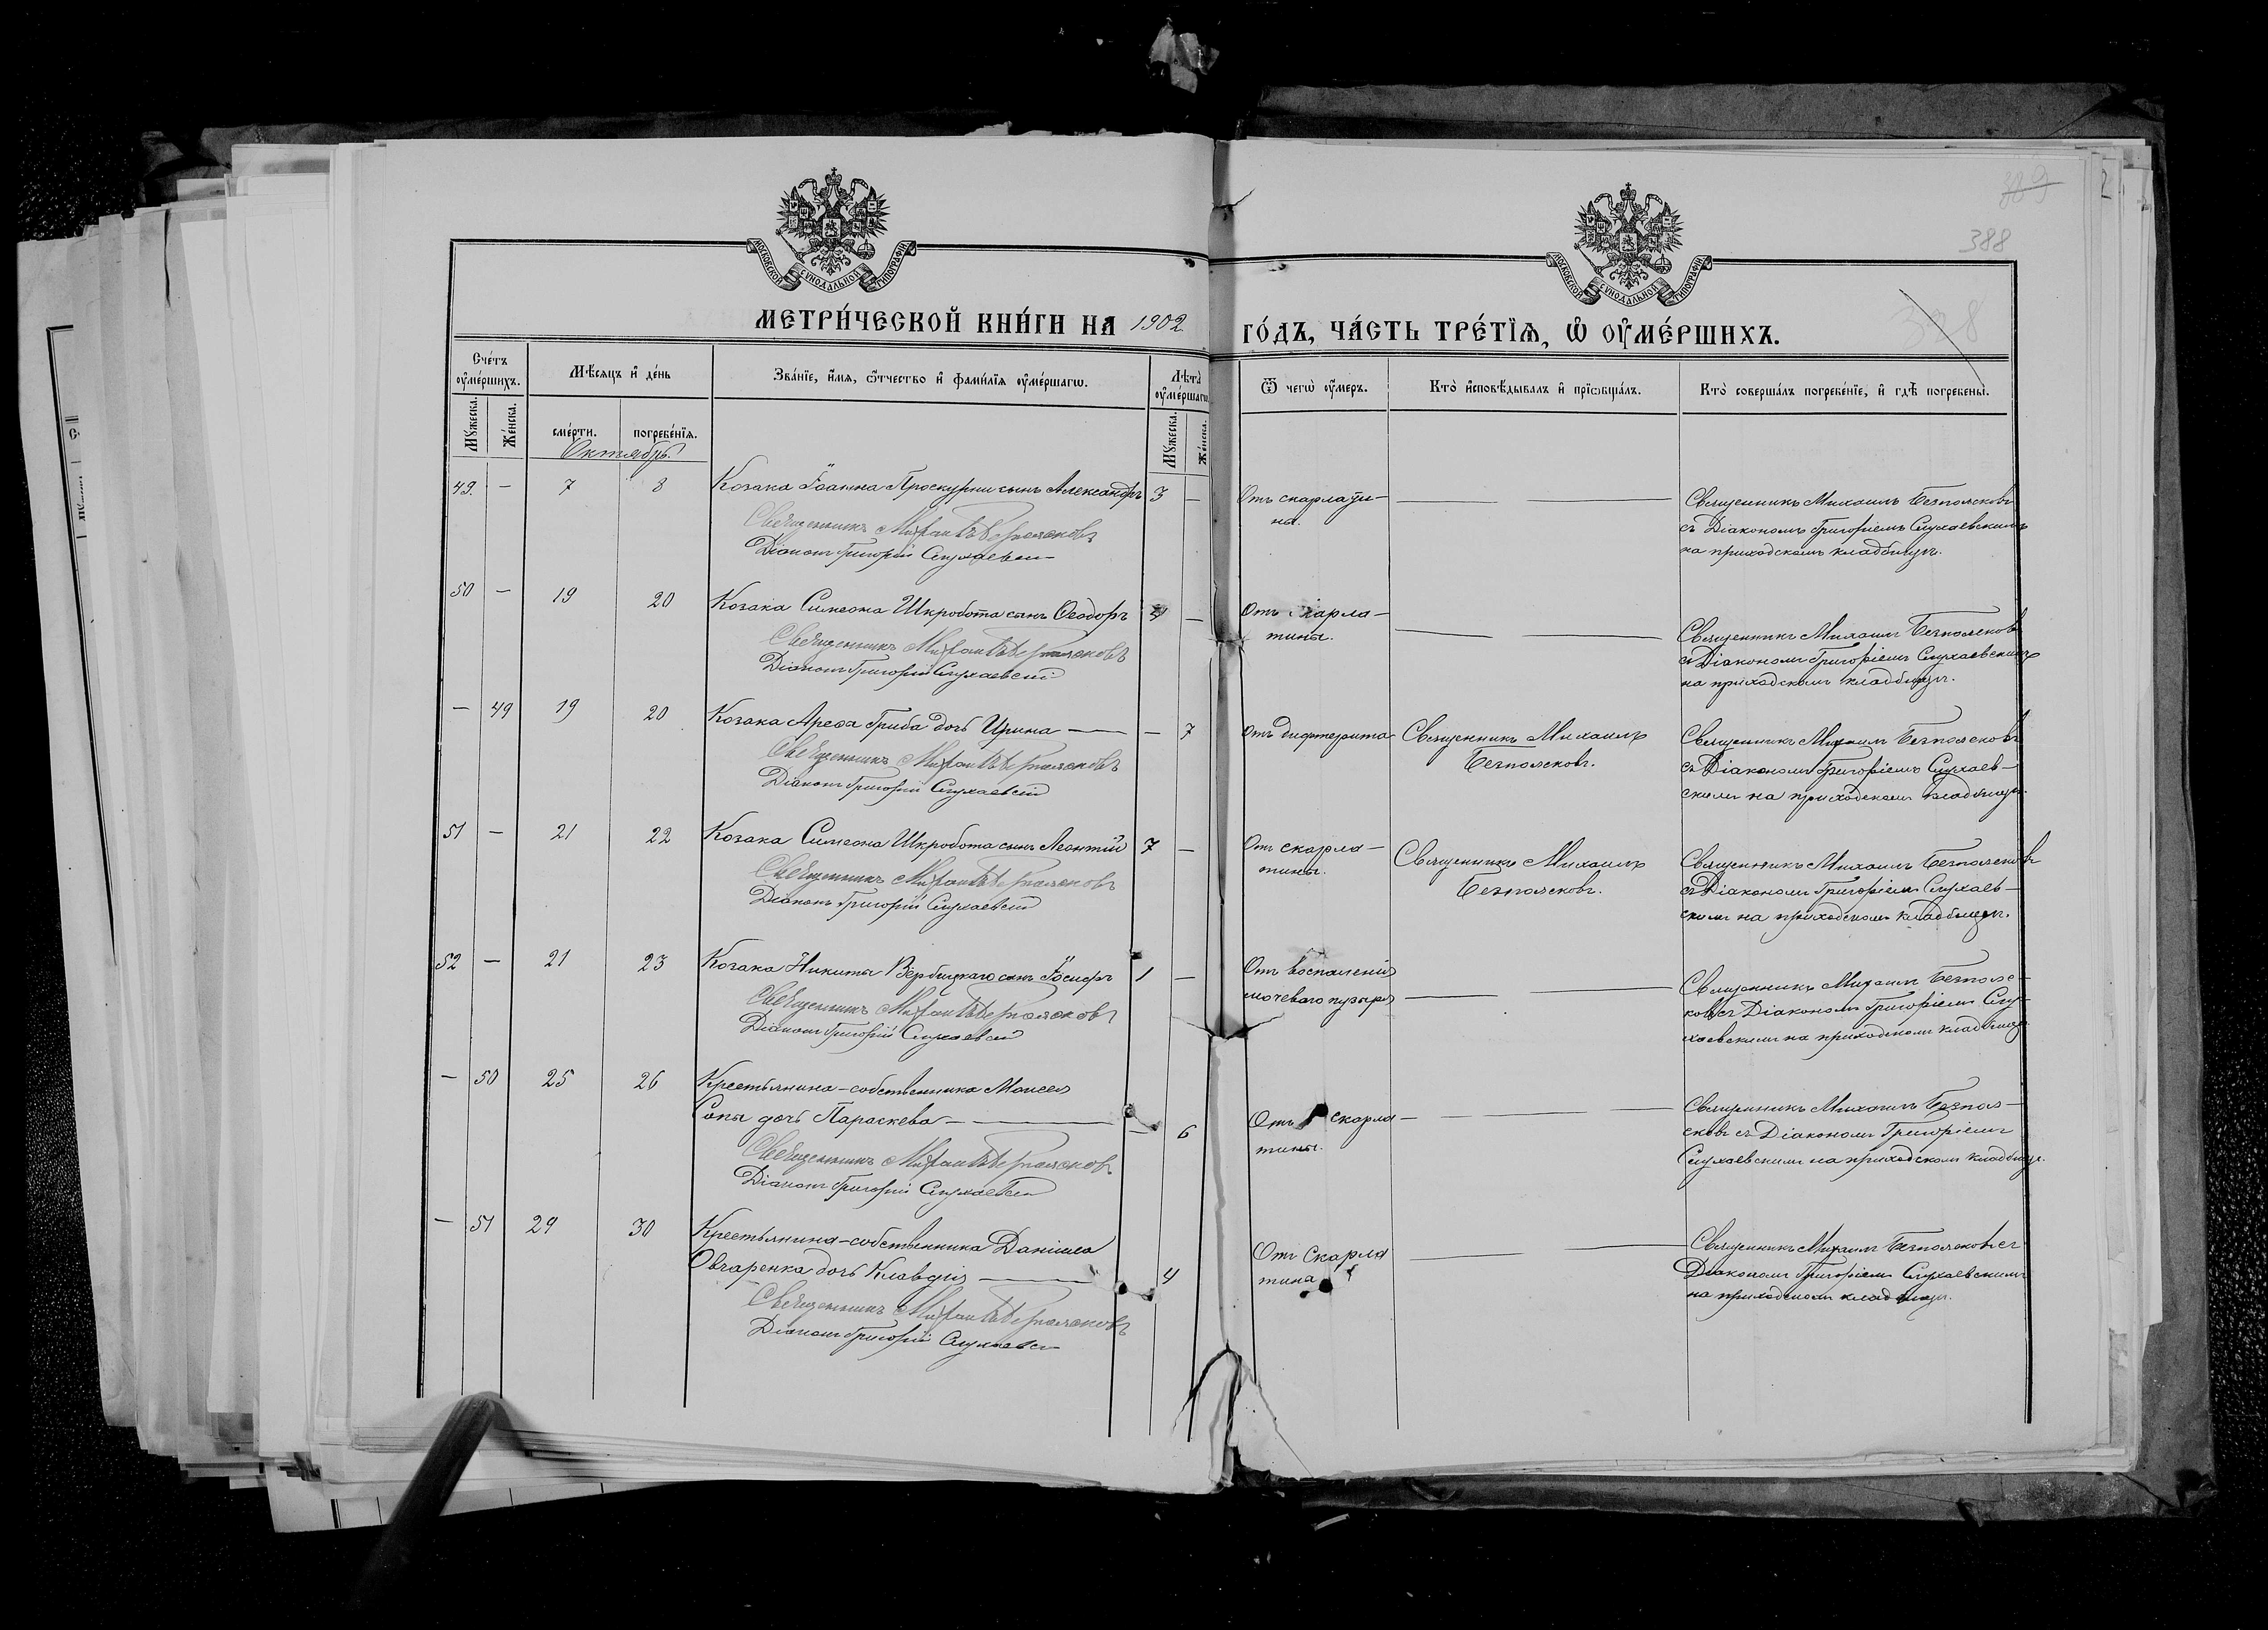 389
388
328
МОСКОВСКОЙ СѴНОДАЛЬНОЙ ТИПОГРАФІИ
МОСКОВСКОЙ СѴНОДАЛЬНОЙ ТИПОГРАФІИ
МЕТРИ́ЧЕСКОЙ КНИ́ГИ НА 1902 ГО́ДЪ, ЧА́СТЬ ТРЕ́ТІѦ, Ѡ ОУ҆МЕ́РШИХЪ.
Сче́тъ оу҆ме́ршихъ.
Мѣ́сяцъ и҆ де́нь
Зва́нїе, и҆́мя, ѻ҆́тчество и҆ фами́лїя оу҆ме́ршагѡ.
Лѣ̀та оу҆ме́ршагѡ
Ѿ чегѡ̀ оу҆́меръ.
Кто̀ и҆сповѣ́дывалъ и҆ прїѡбща́лъ.
Кто̀ соверша́лъ погребе́нїе, и҆ гдѣ̀ погребены̀.
Мꙋ́жеска.
Же́нска.
сме́рти.
погребе́нїя.
Мꙋ́жеска.
Же́нска.
Октябрь.
49. — 7 8 Козака Іоанна Проскурни сынъ Александръ 3 —
Священникъ Михаилъ Безполсковъ
Діаконъ Григорій Слухаевскій
Отъ скарлати-
на.
Священникъ Михаилъ Безполсковъ
съ Діакономъ Григоріемъ Слухаевскимъ
на приходскомъ кладбищѣ.
50 — 19 20 Козака Симеона Шкробота сынъ Ѳеодоръ 4 —
Священникъ Михаилъ Безполсковъ
Діаконъ Григорій Слухаевскій
Отъ скарла-
тины.
Священникъ Михаилъ Безполсковъ
съ Діакономъ Григоріемъ Слухаевскимъ
на приходскомъ кладбищѣ.
— 49 19 20 Козака Ареѳа Гриба дочь Ирина — — 7
Священникъ Михаилъ Безполсковъ
Діаконъ Григорій Слухаевскій
Отъ дифтерита
Священникъ Михаилъ
Безполсковъ.
Священникъ Михаилъ Безполсковъ
съ Діакономъ Григоріемъ Слухаев-
скимъ на приходскомъ кладбищѣ.
51 — 21 22 Козака Симеона Шкробота сынъ Леонтій 7 —
Священникъ Михаилъ Безполсковъ
Діаконъ Григорій Слухаевскій
Отъ скарла-
тины.
Священникъ Михаилъ
Безполсковъ.
Священникъ Михаилъ Безполсковъ
съ Діакономъ Григоріемъ Слухаев-
скимъ на приходскомъ кладбищѣ.
52 — 21 23 Козака Никиты Вербицкаго сынъ Іосифъ 1 —
Священникъ Михаилъ Безполсковъ
Діаконъ Григорій Слухаевскій
Отъ воспаленія
мочеваго пузыря
Священникъ Михаилъ Безполс-
ковъ съ Діакономъ Григоріемъ Слу-
хаевскимъ на приходскомъ кладбищѣ
— 50 25 26 Крестьянина-собственника Моисея
Сопы дочь Параскева — — 6
Священникъ Михаилъ Безполсковъ
Діаконъ Григорій Слухаевскій
Отъ скарла-
тины.
Священникъ Михаилъ Безпол-
сковъ съ Діакономъ Григоріемъ
Слухаевскимъ на приходскомъ кладбищѣ.
— 51 29 30 Крестьянина-собственника Даніила
Овчаренка дочь Клавдія — 4
Священникъ Михаилъ Безполсковъ
Діаконъ Григорій Слухаевскій
Отъ Скарла
тина
Священникъ Михаилъ Безполсковъ съ
Діакономъ Григоріемъ Слухаевскимъ
на приходскомъ кладбищѣ.